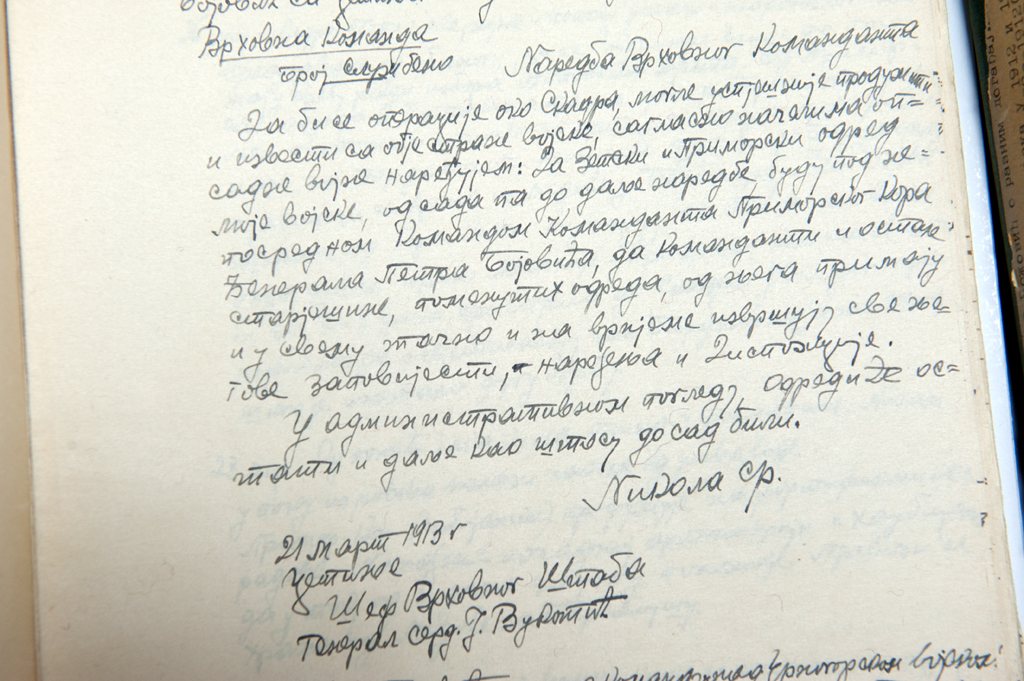 Врховна Команда
број службено Наредба Врховног Команданта
Да би се операције око Скадра, могле успјешније продужити
и извести са обје стране војске, сагласно начелима оп=
садне војне наређујем: Да Зетски и Приморски одред
моје војске, од сада па до даље наредбе, буду под не=
посредном Командом Команданта Приморског Кора
Ђенерала Петра Бојовића, да Команданти и остале
старјешине, поменутих одреда, од њега примају
и у свему тачно и на вријеме извршују све ње=
гове заповијести, - наређења и диспозиције.
У административном погледу, одреди ће ос=
тати и даље као што су до сад били.
Никола ср.
21 март 1913 г
Цетиње
Шеф Врховног Штаба
Генерал серд. Ј. Вукотић